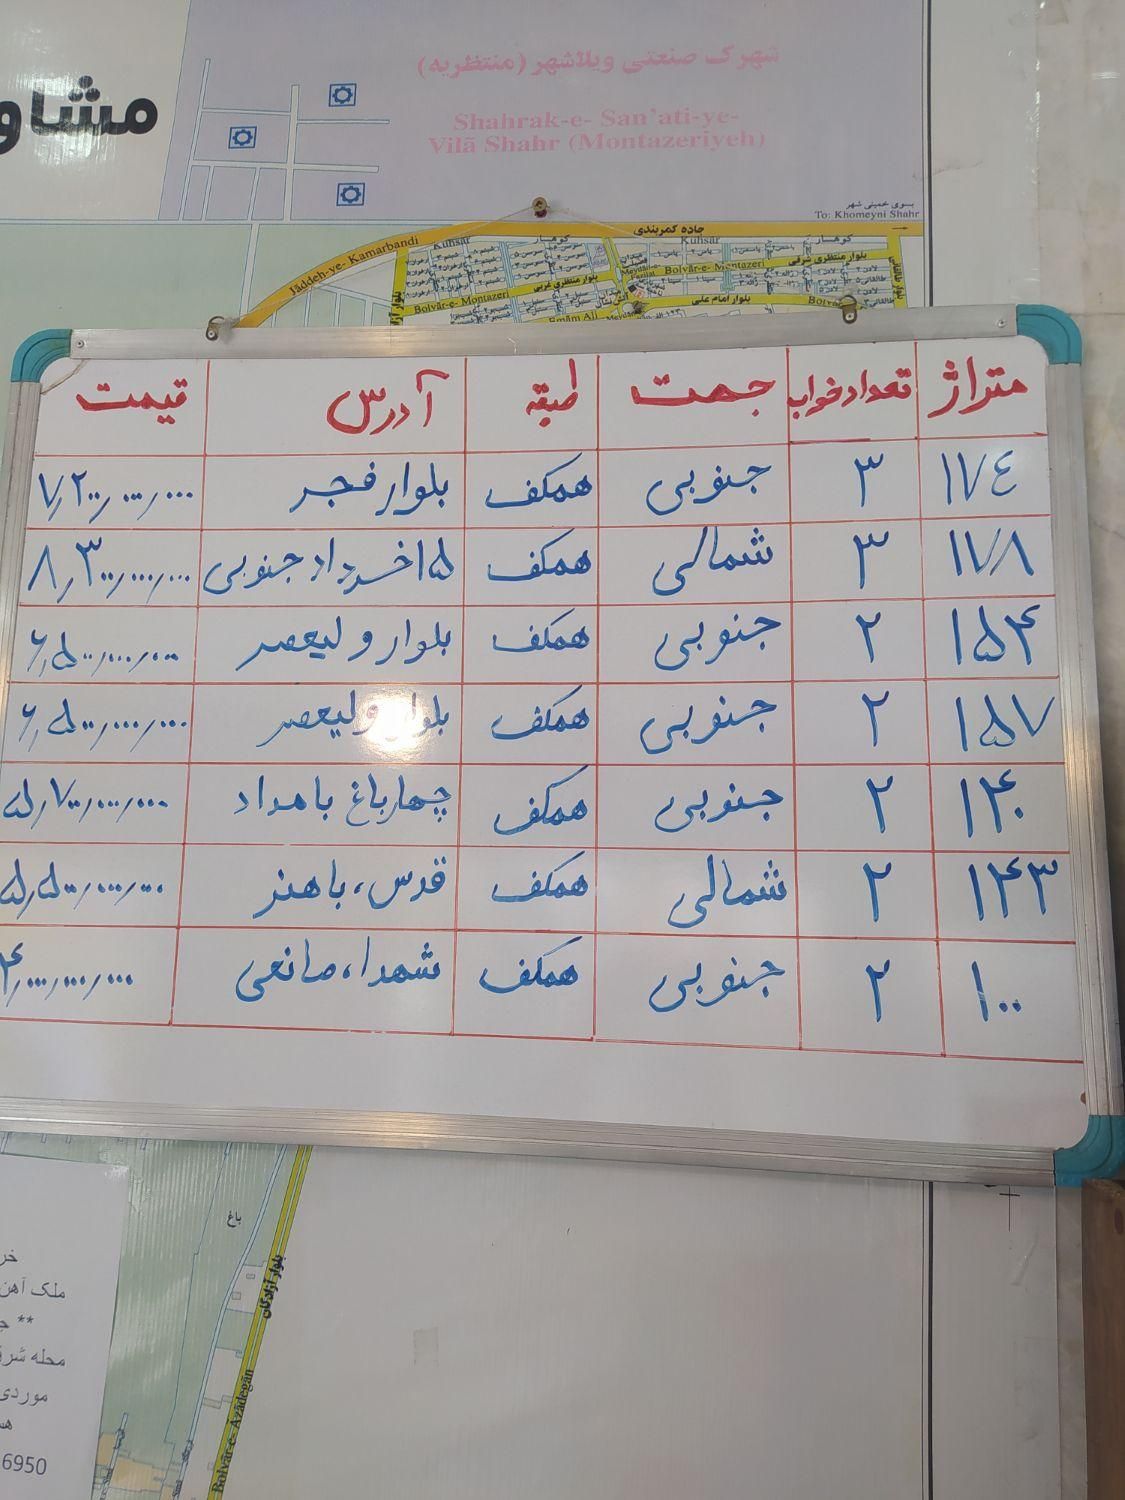 مشاو
شهرک صنعتی ویلاشهر (منتظریه)
Shahrak-e- San'ati-ye-
Vilā Shahr (Montazeriyeh)
بسوی خمینی شهر
To: Khomeyni Shahr
جاده کمربندی
Jāddeh-ye- Kamarbandi
Kuhsar کوهسار Kuhsar کوهسار
بلوار منتظری شرقی
Bolvār-e- Montazeri
بلوار منتظری غربی
Bolvār-e- Montazeri
بلوار امام علی
Emām Ali
متراژ تعداد خواب جهت طبقه آدرس قیمت
۱۷٤ ۳ جنوبی همکف بلوار فجر ۷٫۲۰۰٫۰۰۰٫۰۰۰
۱۷۸ ۳ شمالی همکف ۱۵ خرداد جنوبی ۸٫۳۰۰٫۰۰۰٫۰۰۰
۱۵۴ ۲ جنوبی همکف بلوار ولیعصر ۶٫۵۰۰٫۰۰۰٫۰۰۰
۱۵۷ ۲ جنوبی همکف بلوار ولیعصر ۶٫۵۰۰٫۰۰۰٫۰۰۰
۱۴۰ ۲ جنوبی همکف چهارباغ بامداد ۵٫۷۰۰٫۰۰۰٫۰۰۰
۱۴۳ ۲ شمالی همکف قدس، باهنر ۵٫۵۰۰٫۰۰۰٫۰۰۰
۱۰۰ ۲ جنوبی همکف شهدا، صانعی ۴٫۰۰۰٫۰۰۰٫۰۰۰
باغ
بلوار آزادگان
Bolvār-e- Āzādegān
خر
ملک آهن
** ج
محله شرق
موردی
هس
6950